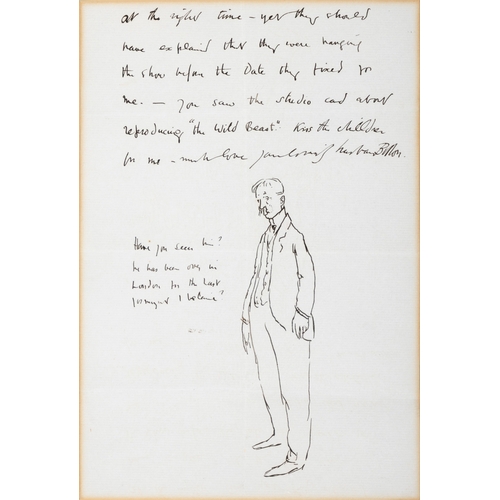 at the right time - yet they should
have explained that they were hanging
the show before the Date they fixed for
me. — You saw the studio card about
reproducing "the Wild Beast". Kiss the children
for me - much love your loving husband
Have you seen him?
he has been over in
London for the last
fortnight I believe?